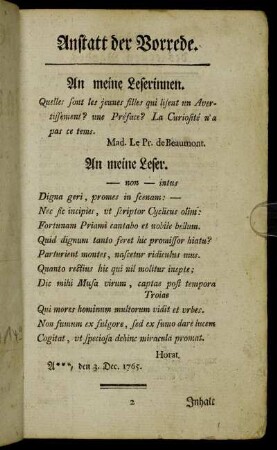 Anstatt der Vorrede.
An meine Leserinnen.
Quelles sont les jeunes filles qui lisent un Aver-
tissement? une Préface? La Curiosité n'a
pas ce tems.
Mad. Le Pr. de Beaumont.
An meine Leser.
— non — intus
Digna geri, promes in scenam: —
Nec sic incipies, vt scriptor Cyclicus olim:
Fortunam Priami cantabo et nobile bellum.
Quid dignum tanto feret hic promissor hiatu?
Parturient montes, nascetur ridiculus mus.
Quanto rectius hic qui nil molitur inepte;
Dic mihi Musa virum, captae post tempora
Troiae
Qui mores hominum multorum vidit et vrbes.
Non fumum ex fulgore, sed ex fumo dare lucem
Cogitat, vt speciosa dehinc miracula promat.
Horat.
A***, den 3. Dec. 1765.
2
Inhalt